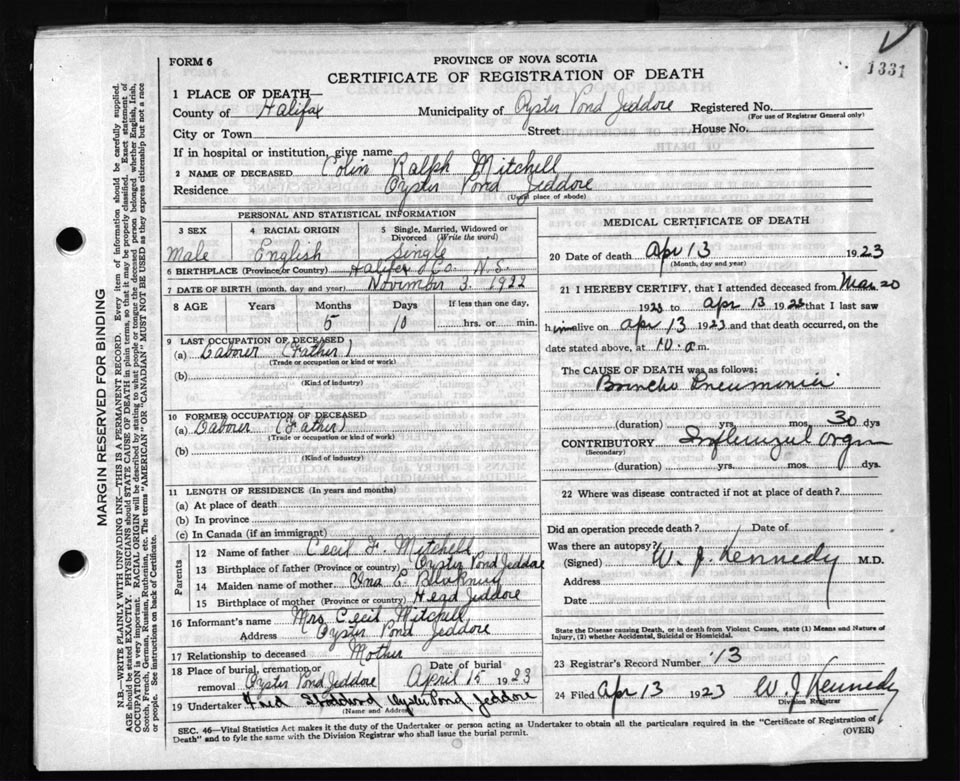 1331
FORM 6
PROVINCE OF NOVA SCOTIA
CERTIFICATE OF REGISTRATION OF DEATH
MARGIN RESERVED FOR BINDING
N.B.—WRITE PLAINLY WITH UNFADING INK—THIS IS A PERMANENT RECORD. Every item of information should be carefully supplied.
AGE should be stated EXACTLY. PHYSICIANS should STATE CAUSE OF DEATH in plain terms, so that it may be properly classified. Exact statement of
OCCUPATION is very important. RACIAL ORIGIN will be described by stating to what people or tongue the deceased person belonged whether English, Irish,
Scotch, French, German, Russian, Ruthenian, etc. The terms "AMERICAN" OR "CANADIAN" MUST NOT BE USED as they express citizenship but not a race
or people. See instructions on back of Certificate.
1 PLACE OF DEATH—
County of Halifax Municipality of Oyster Pond Jeddore Registered No.
(For use of Registrar General only)
City or Town Street House No.
If in hospital or institution, give name
2 NAME OF DECEASED Colin Ralph Mitchell
Residence Oyster Pond Jeddore
(Usual place of abode)
PERSONAL AND STATISTICAL INFORMATION
3 SEX 4 RACIAL ORIGIN 5 Single, Married, Widowed or Divorced (Write the word)
Male English Single
6 BIRTHPLACE (Province or Country) Halifax Co. N.S.
7 DATE OF BIRTH (month, day and year) November 3, 1922
8 AGE Years Months Days If less than one day,
5 10 hrs. or min.
9 LAST OCCUPATION OF DECEASED
(a) Laborer (Father)
(Trade or occupation or kind or work)
(b)
(Kind of industry)
10 FORMER OCCUPATION OF DECEASED
(a) Laborer (Father)
(Trade or occupation or kind of work)
(b)
(Kind of industry)
11 LENGTH OF RESIDENCE (In years and months)
(a) At place of death
(b) In province
(c) In Canada (if an immigrant)
Parents
12 Name of father Cecil F. Mitchell
13 Birthplace of father (Province or country) Oyster Pond Jeddore
14 Maiden name of mother Ina E.
15 Birthplace of mother (Province or country) Head Jeddore
16 Informant's name Mrs Cecil Mitchell
Address Oyster Pond Jeddore
17 Relationship to deceased Mother
18 Place of burial, cremation or removal Oyster Pond Jeddore Date of burial April 15 1923
19 Undertaker Fred Oyster Pond Jeddore
(Name and Address)
MEDICAL CERTIFICATE OF DEATH
20 Date of death Apr 13 1923
(Month, day and year)
21 I HEREBY CERTIFY, that I attended deceased from Mar. 20
1923 to Apr 13 1923 that I last saw
him alive on Apr 13 1923 and that death occurred, on the
date stated above, at 10 a m.
The CAUSE OF DEATH was as follows:
Broncho Pneumonia
(duration) yrs. mos. 30 dys
CONTRIBUTORY
(Secondary)
(duration) yrs. mos. dys.
22 Where was disease contracted if not at place of death?
Did an operation precede death? Date of
Was there an autopsy?
(Signed) W. J. Kennedy M.D.
Address
Date
State the Disease causing Death, or in death from Violent Causes, state (1) Means and Nature of
Injury, (2) whether Accidental, Suicidal or Homicidal.
23 Registrar's Record Number 13
24 Filed Apr 13 1923 W. J. Kennedy
Division Registrar
SEC. 46—Vital Statistics Act makes it the duty of the Undertaker or person acting as Undertaker to obtain all the particulars required in the "Certificate of Registration of
Death" and to fyle the same with the Division Registrar who shall issue the burial permit.
(OVER)